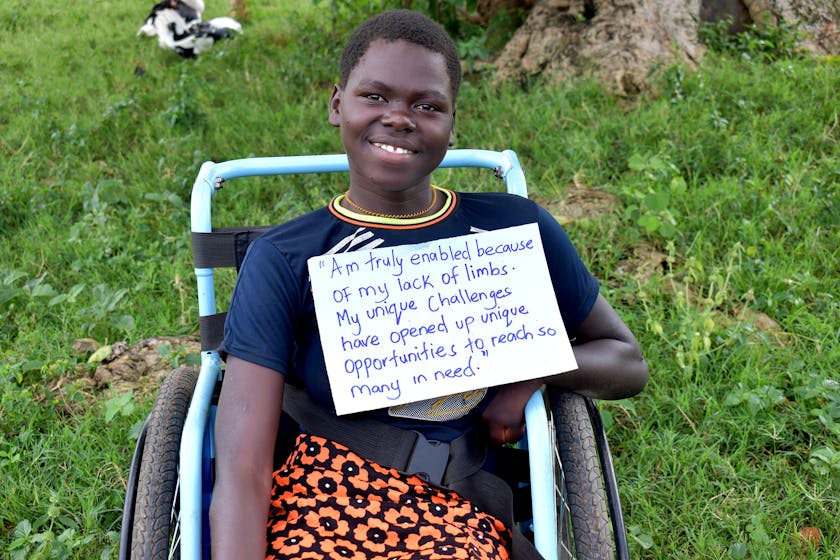 "Am truly enabled because
of my lack of limbs.
My unique Challenges
have opened up unique
opportunities to reach so
many in need."